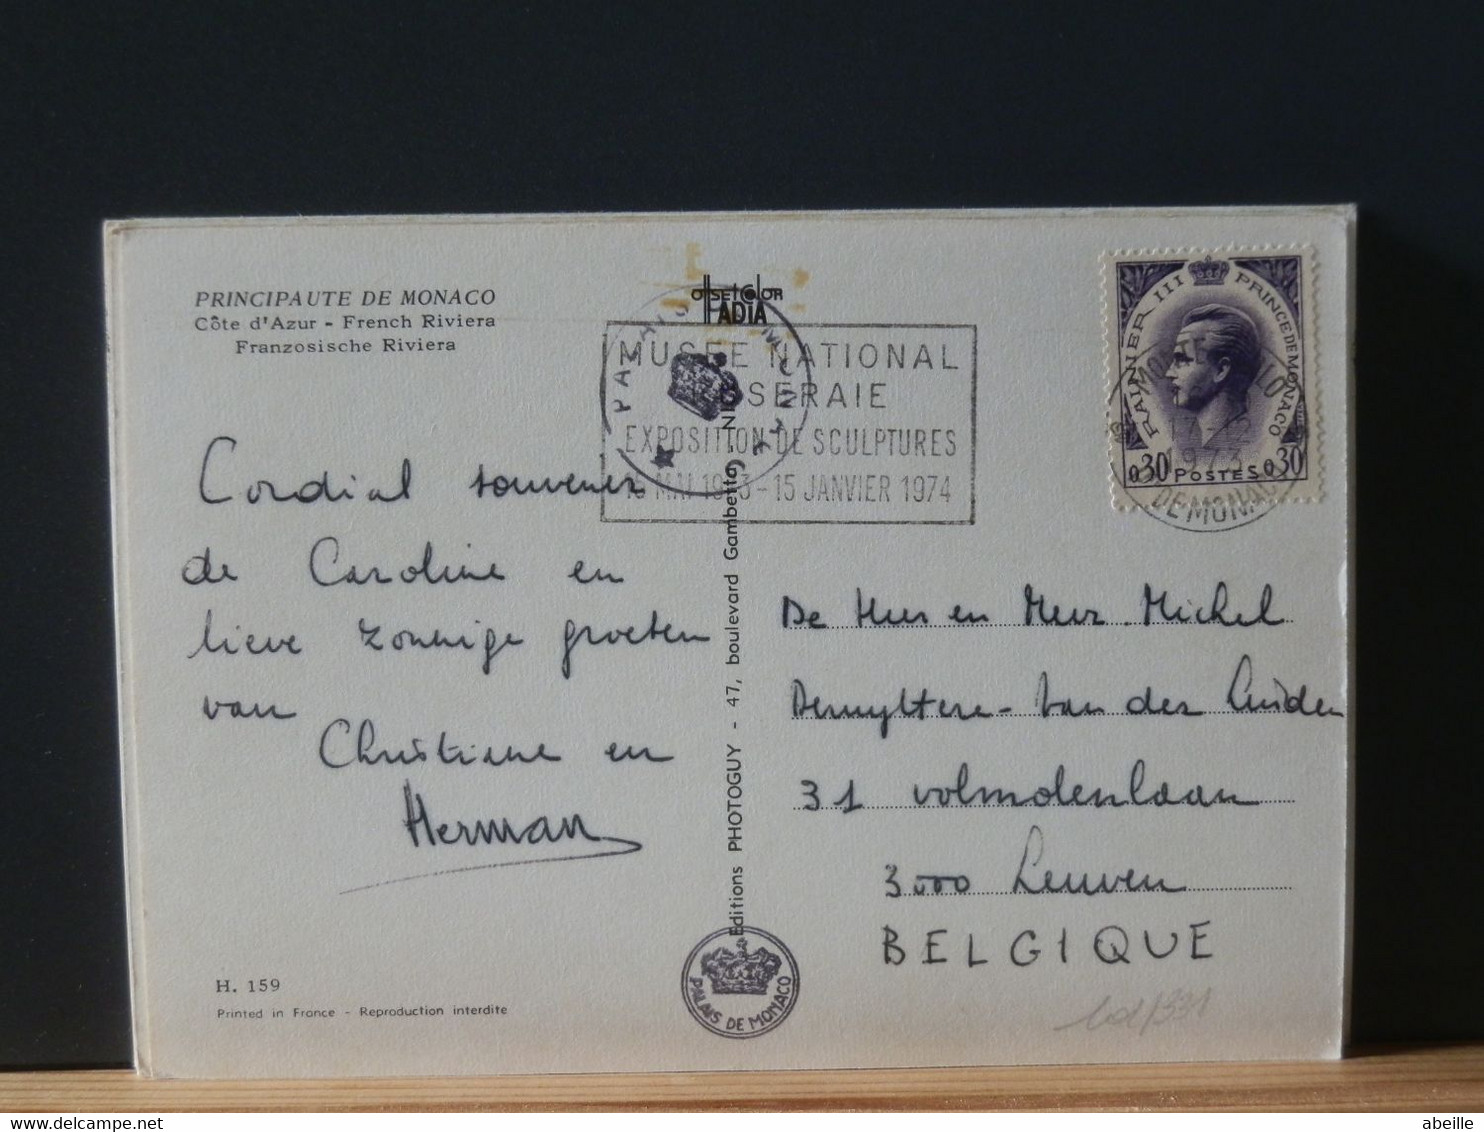 PRINCIPAUTE DE MONACO
Côte d'Azur - French Riviera
Franzosische Riviera
OFFSETCOLOR
IADIA
MUSÉE NATIONAL
EXPOSITION DE SCULPTURES
MAI 1973 - 15 JANVIER 1974
RAINIER III PRINCE DE MONACO
0.30 POSTES 0.30
1973
Cordial souvenir
de Caroline en
lieve zonnige groeten
van
Christiane en
Herman
Editions PHOTOGUY - 47, boulevard Gambetta - NICE
De Heer en Mevr. Michel
Demyttere - Van der Linden
31 Volmolenlaan
3000 Leuven
BELGIQUE
H. 159
Printed in France - Reproduction interdite
PALAIS DE MONACO
abeille